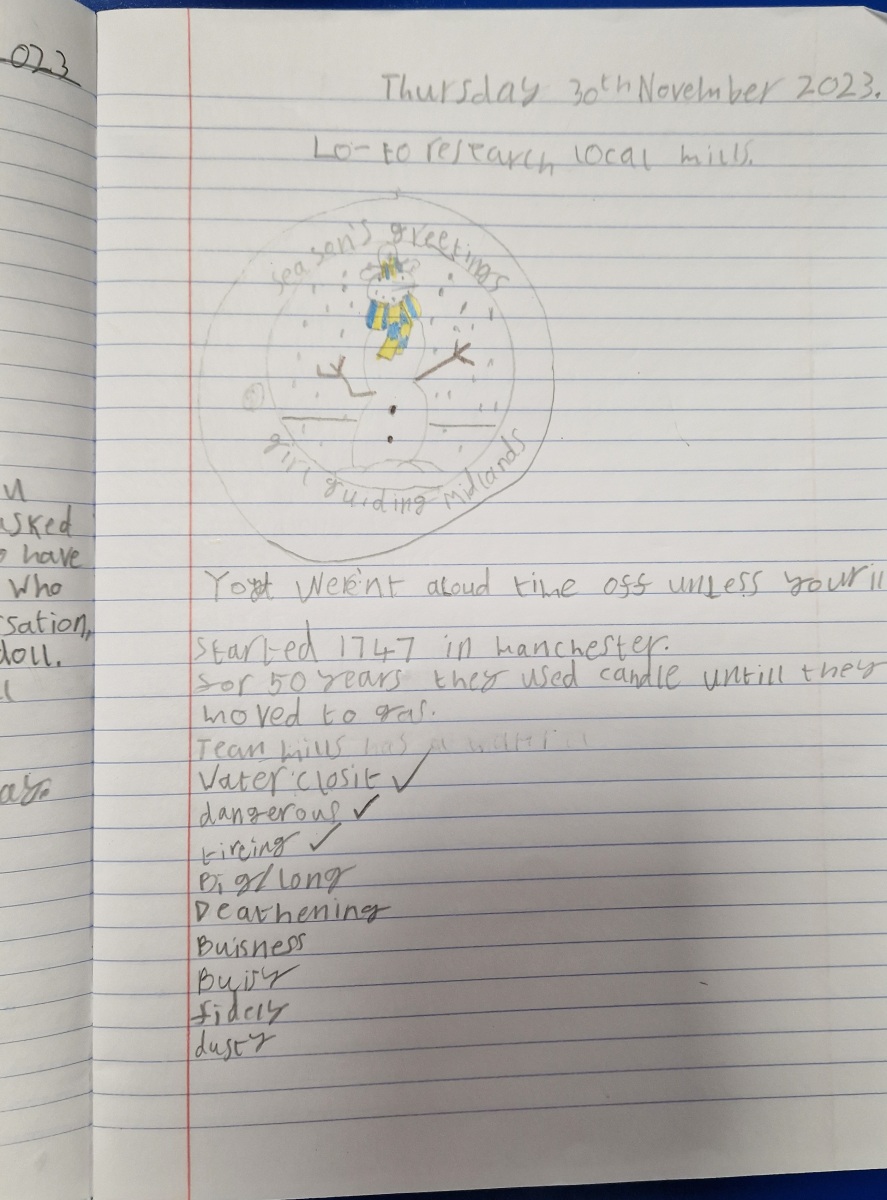 023
Thursday 30th November 2023.
Lo- to research local mills.
season's greetings
girl guiding midlands
u
asked
have
Who
sation,
doll.
ay.
Werent aloud time off unless your ill
Started 1747 in manchester.
for 50 years they used candle untill they
moved to gas.
Tean mills has a
Water closit ✓
dangerous ✓
tireing ✓
Big/long
Deathening
Buisness
Buisy
fidely
dusty